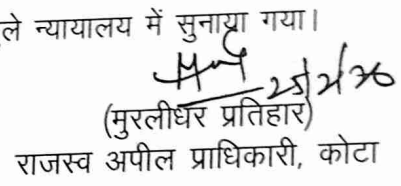 ले न्यायालय में सुनाया गया।
(मुरलीधर प्रतिहार)
राजस्व अपील प्राधिकारी, कोटा